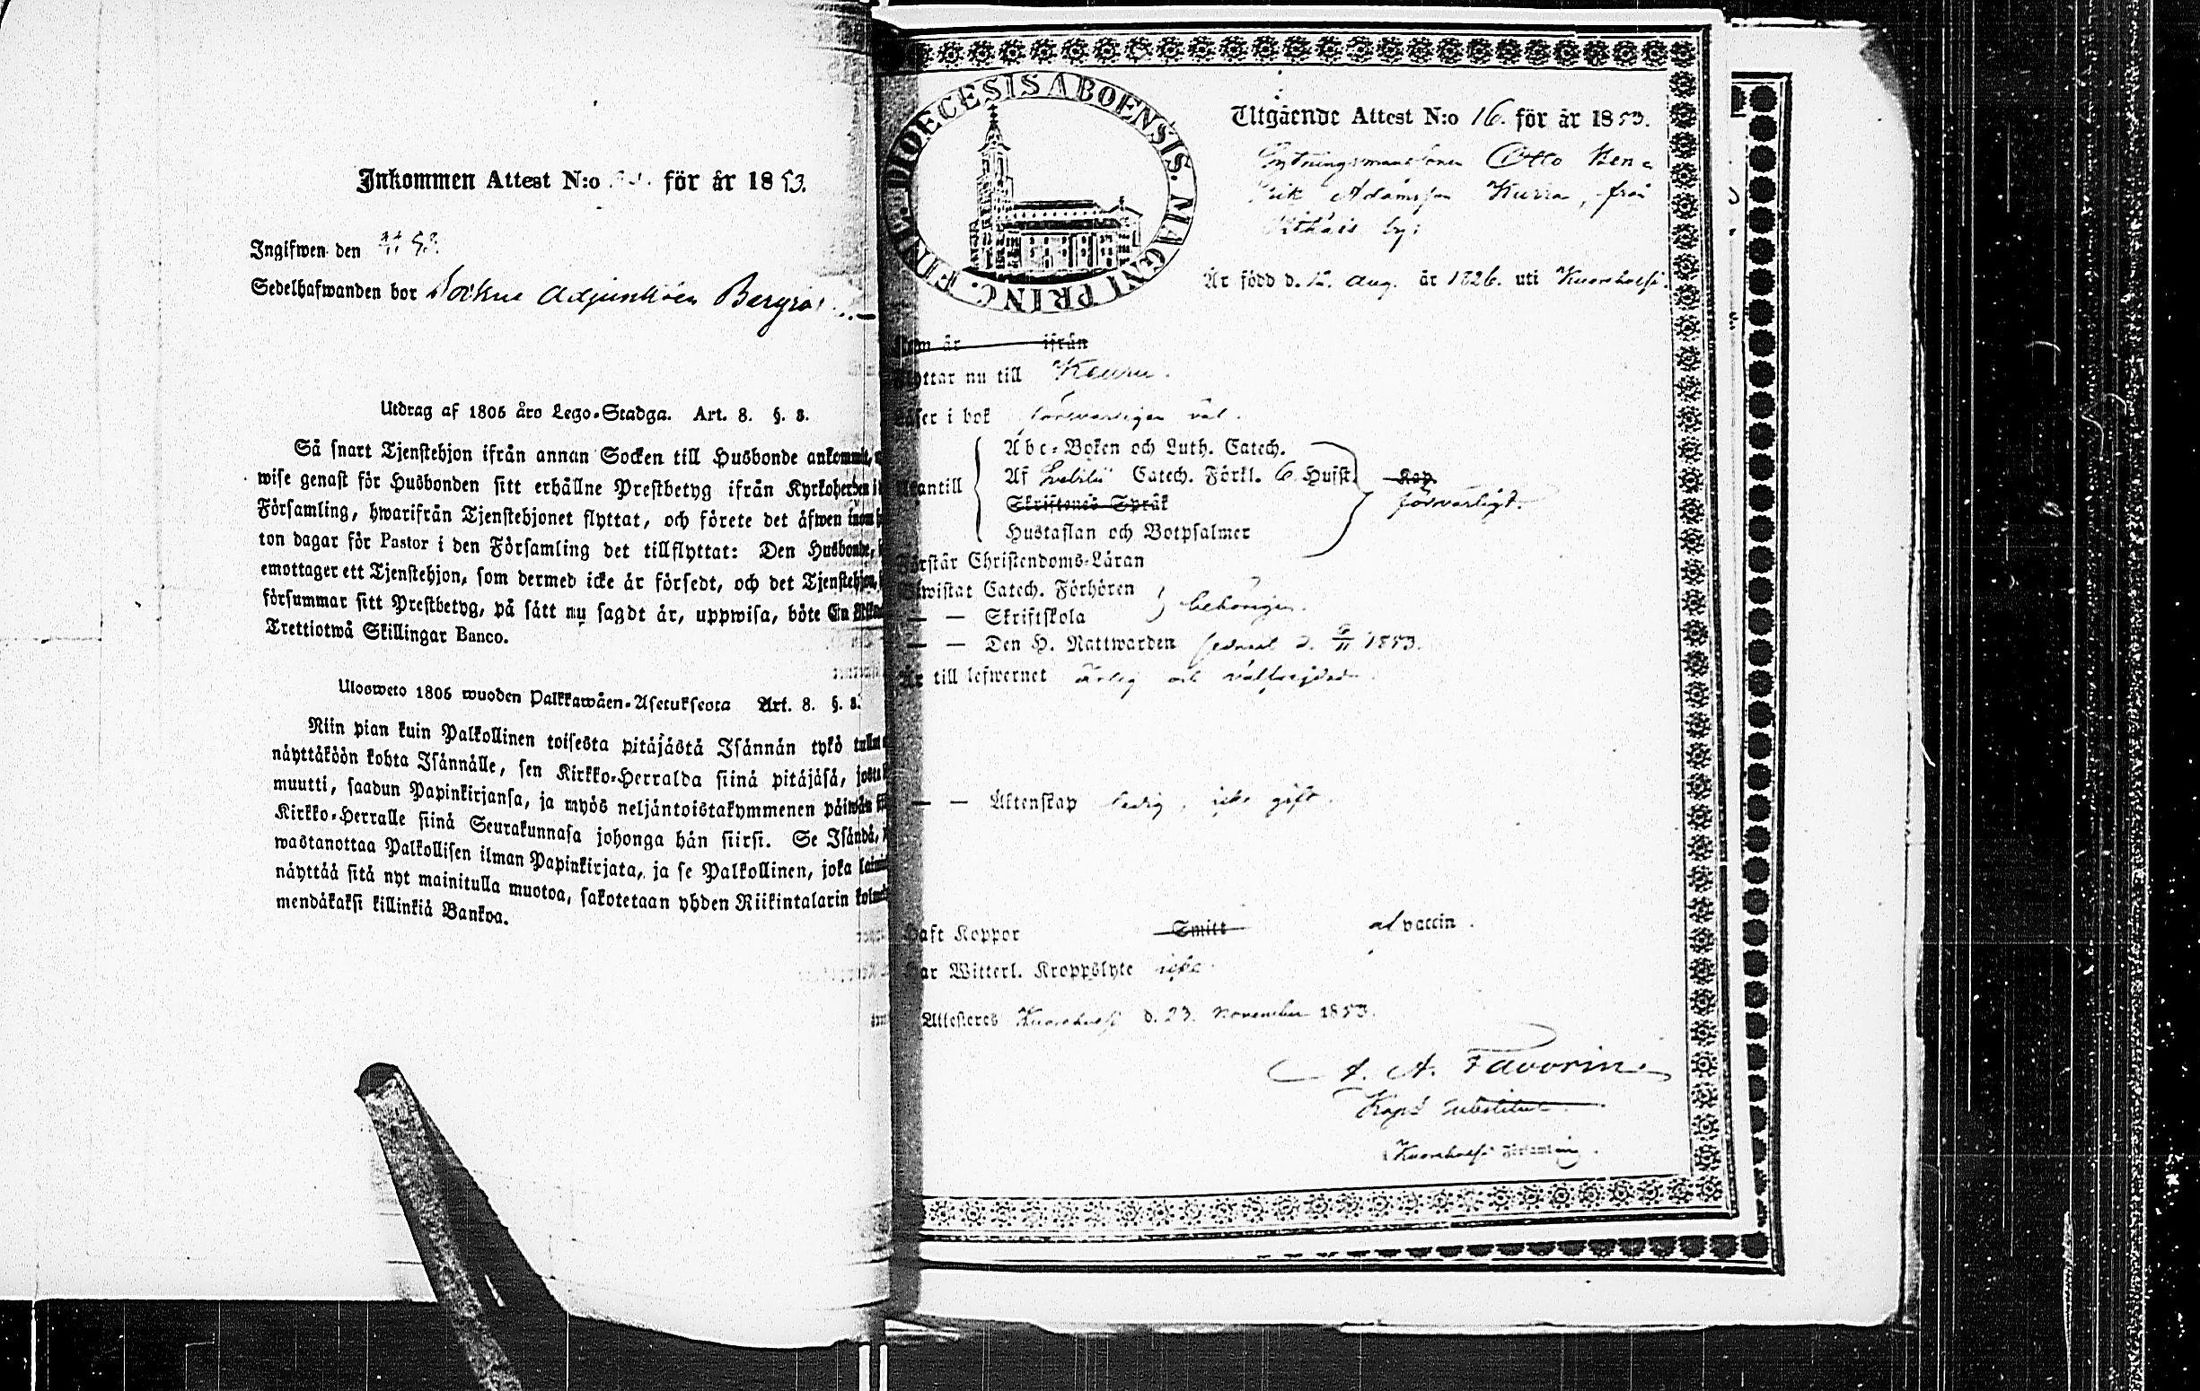 Inkommen Attest N:o för år 1853.
Ingifwen den
Sedelhafwanden bor Sockne Adjunkten
Utdrag af 1805 års Lego-Stadga. Art. 8. §. 8.
Så snart Tjenstehjon ifrån annan Socken till Husbonde ankommit,
wise genast för Husbonden sitt erhållne Prestbetyg ifrån Kyrkoherden i
Församling, hwarifrån Tjenstehjonet flyttat, och förete det äfwen inom
ton dagar för Pastor i den Församling det tillflyttat: Den Husbonde,
emottager ett Tjenstehjon, som dermed icke är försedt, och det Tjenstehjon,
försummar sitt Prestbetyg, på sätt nu sagdt är, uppwisa, böte En
Trettiotwå Skillingar Banco.
Ulosweto 1805 wuoden Palkkawäen-Asetuksesta Art. 8. §. 8.
Niin pian kuin Palkollinen toisesta pitäjästä Isännän tykö tullut
näyttäköön kohta Isännälle, sen Kirkko-Herralda siinä pitäjäsä, josta
muutti, saadun Papinkirjansa, ja myös neljäntoistakymmenen päiwän
Kirkko-Herralle siinä Seurakunnasa johonga hän siirsi. Se Isändä,
wastanottaa Palkollisen ilman Papinkirjata, ja se Palkollinen, joka
näyttää sitä nyt mainitulla muotoa, sakotetaan yhden Riikintalarin
mendäkaksi killinkiä Bankoa.
FINL. DIOECESIS ABOENSIS. MAGNI PRINC.
Utgående Attest N:o 16. för år 1853.
Otto Hen-
rik Adamsson Kurra, från
by:
Är född d. 12. Aug. år 1826. uti Kuorehvesi.
år ifrån
Flyttar nu till Keuru.
Läser i bok försvarligen väl.
Abc-Boken och Luth. Catech.
Utantill Af Catech. Förkl. 6 Husst.
försvarligt.
Skriftenes Språk
Hustaflan och Botpsalmer
Förstår Christendoms-Läran
Biwistat Catech. Förhören
— — Skriftskola behörigen.
— — Den H. Nattwarden senast d. 6/11 1853.
Är till lefwernet ärlig och välfrejdad.
— — Äktenskap ledig, icke gift.
Haft Koppor Smitt af vaccin.
Har Witterl. Kroppslyte icke.
Attesteras Kuorehvesi d. 23. November 1853.
A. A. Favorin
Kaps Substitut.
Kuorehvesi Församling.